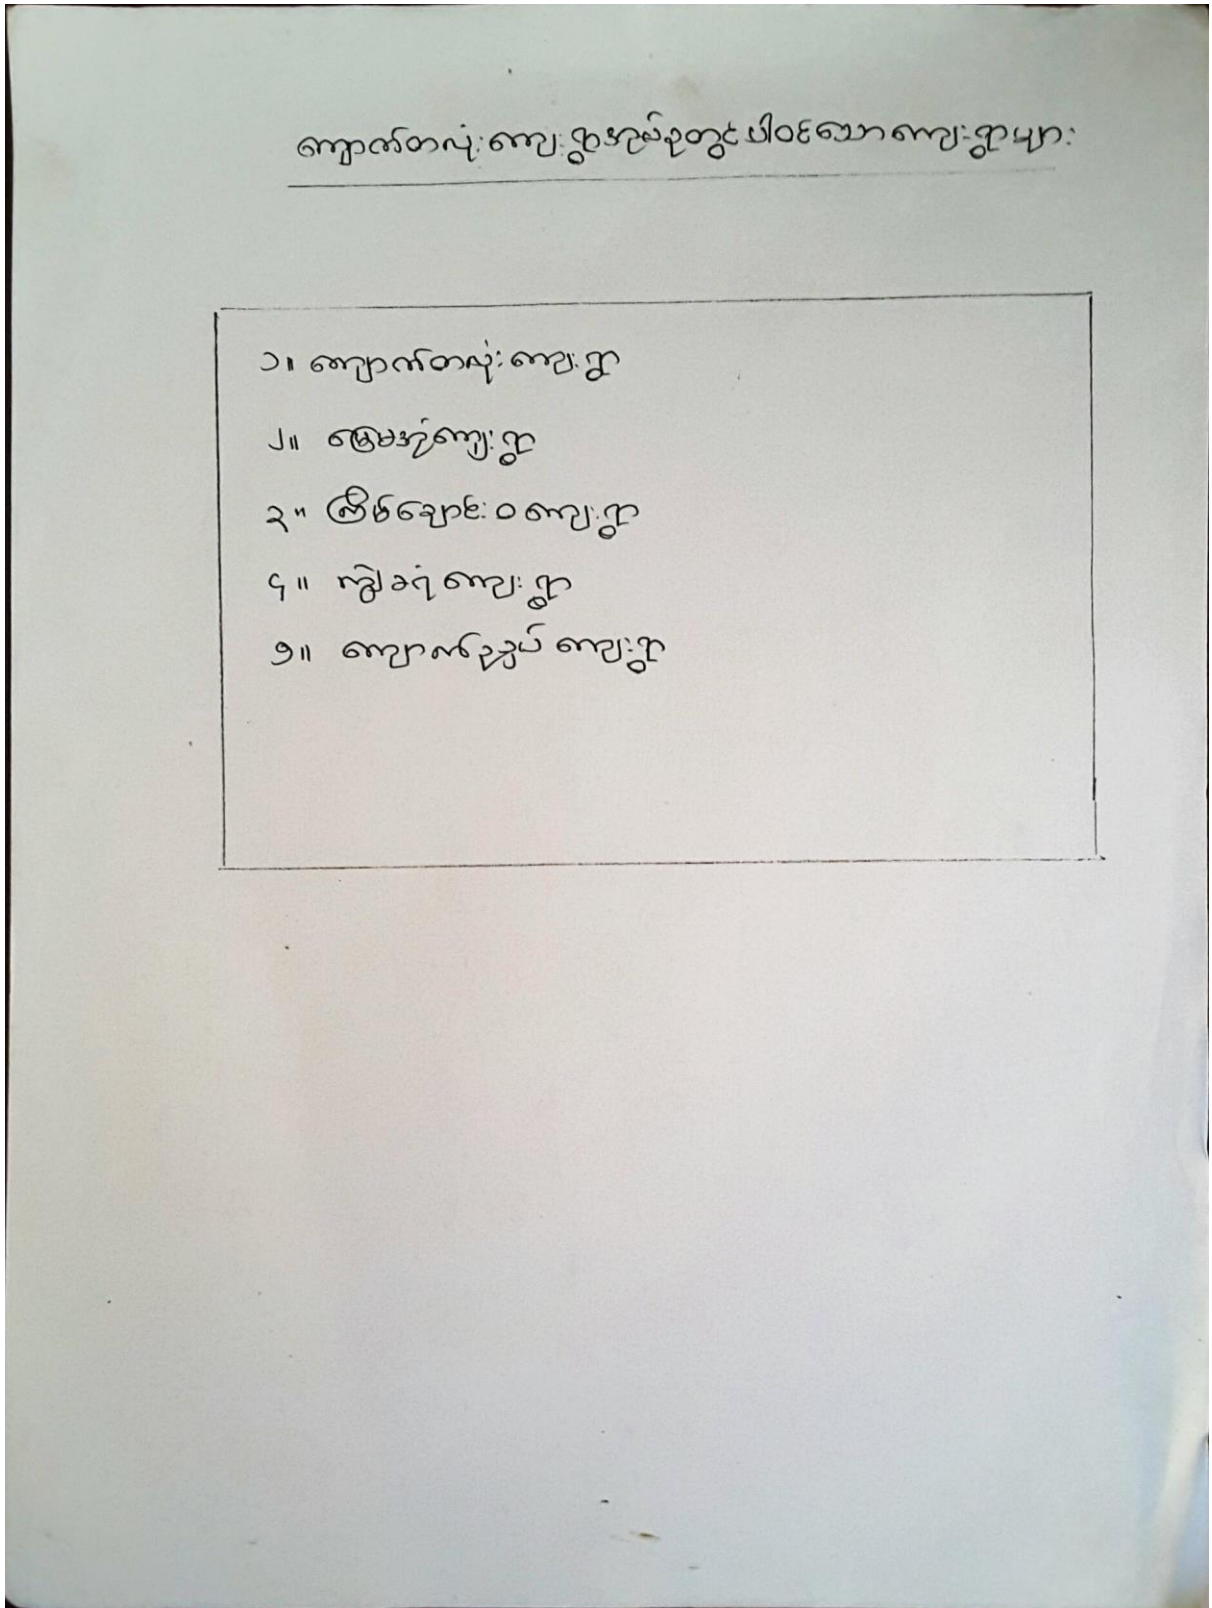 ကျောက်တလုံးကျေးရွာအုပ်စုတွင်ပါဝင်သောကျေးရွာများ
၁။ ကျောက်တလုံးကျေးရွာ
၂။ မြေမအုံကျေးရွာ
၃။ ကြိမ်ချောင်းဝကျေးရွာ
၄။ ကျွဲခရံကျေးရွာ
၅။ ကျောက်ညှပ်ကျေးရွာ